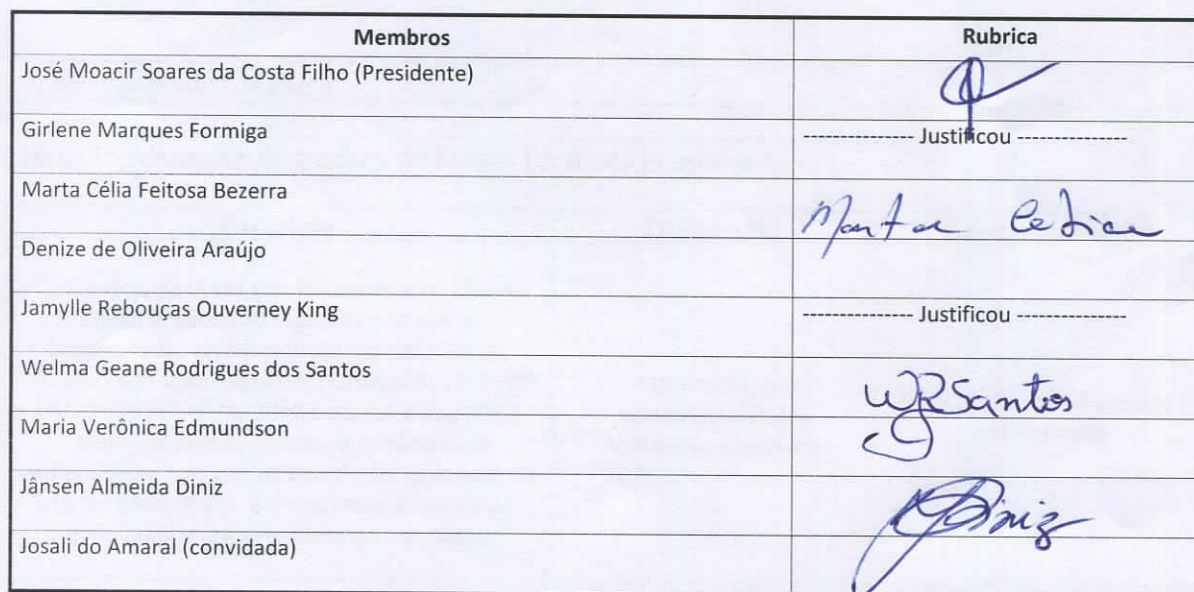 Membros Rubrica
José Moacir Soares da Costa Filho (Presidente)
Girlene Marques Formiga --------------- Justificou ---------------
Marta Célia Feitosa Bezerra Marta Célia
Denize de Oliveira Araújo
Jamylle Rebouças Ouverney King --------------- Justificou ---------------
Welma Geane Rodrigues dos Santos WGRSantos
Maria Verônica Edmundson
Jânsen Almeida Diniz Diniz
Josali do Amaral (convidada)